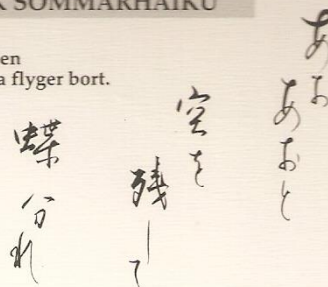 K SOMMARHAIKU
en
a flyger bort.
あお
あおと
空を
残して
蝶
分れ